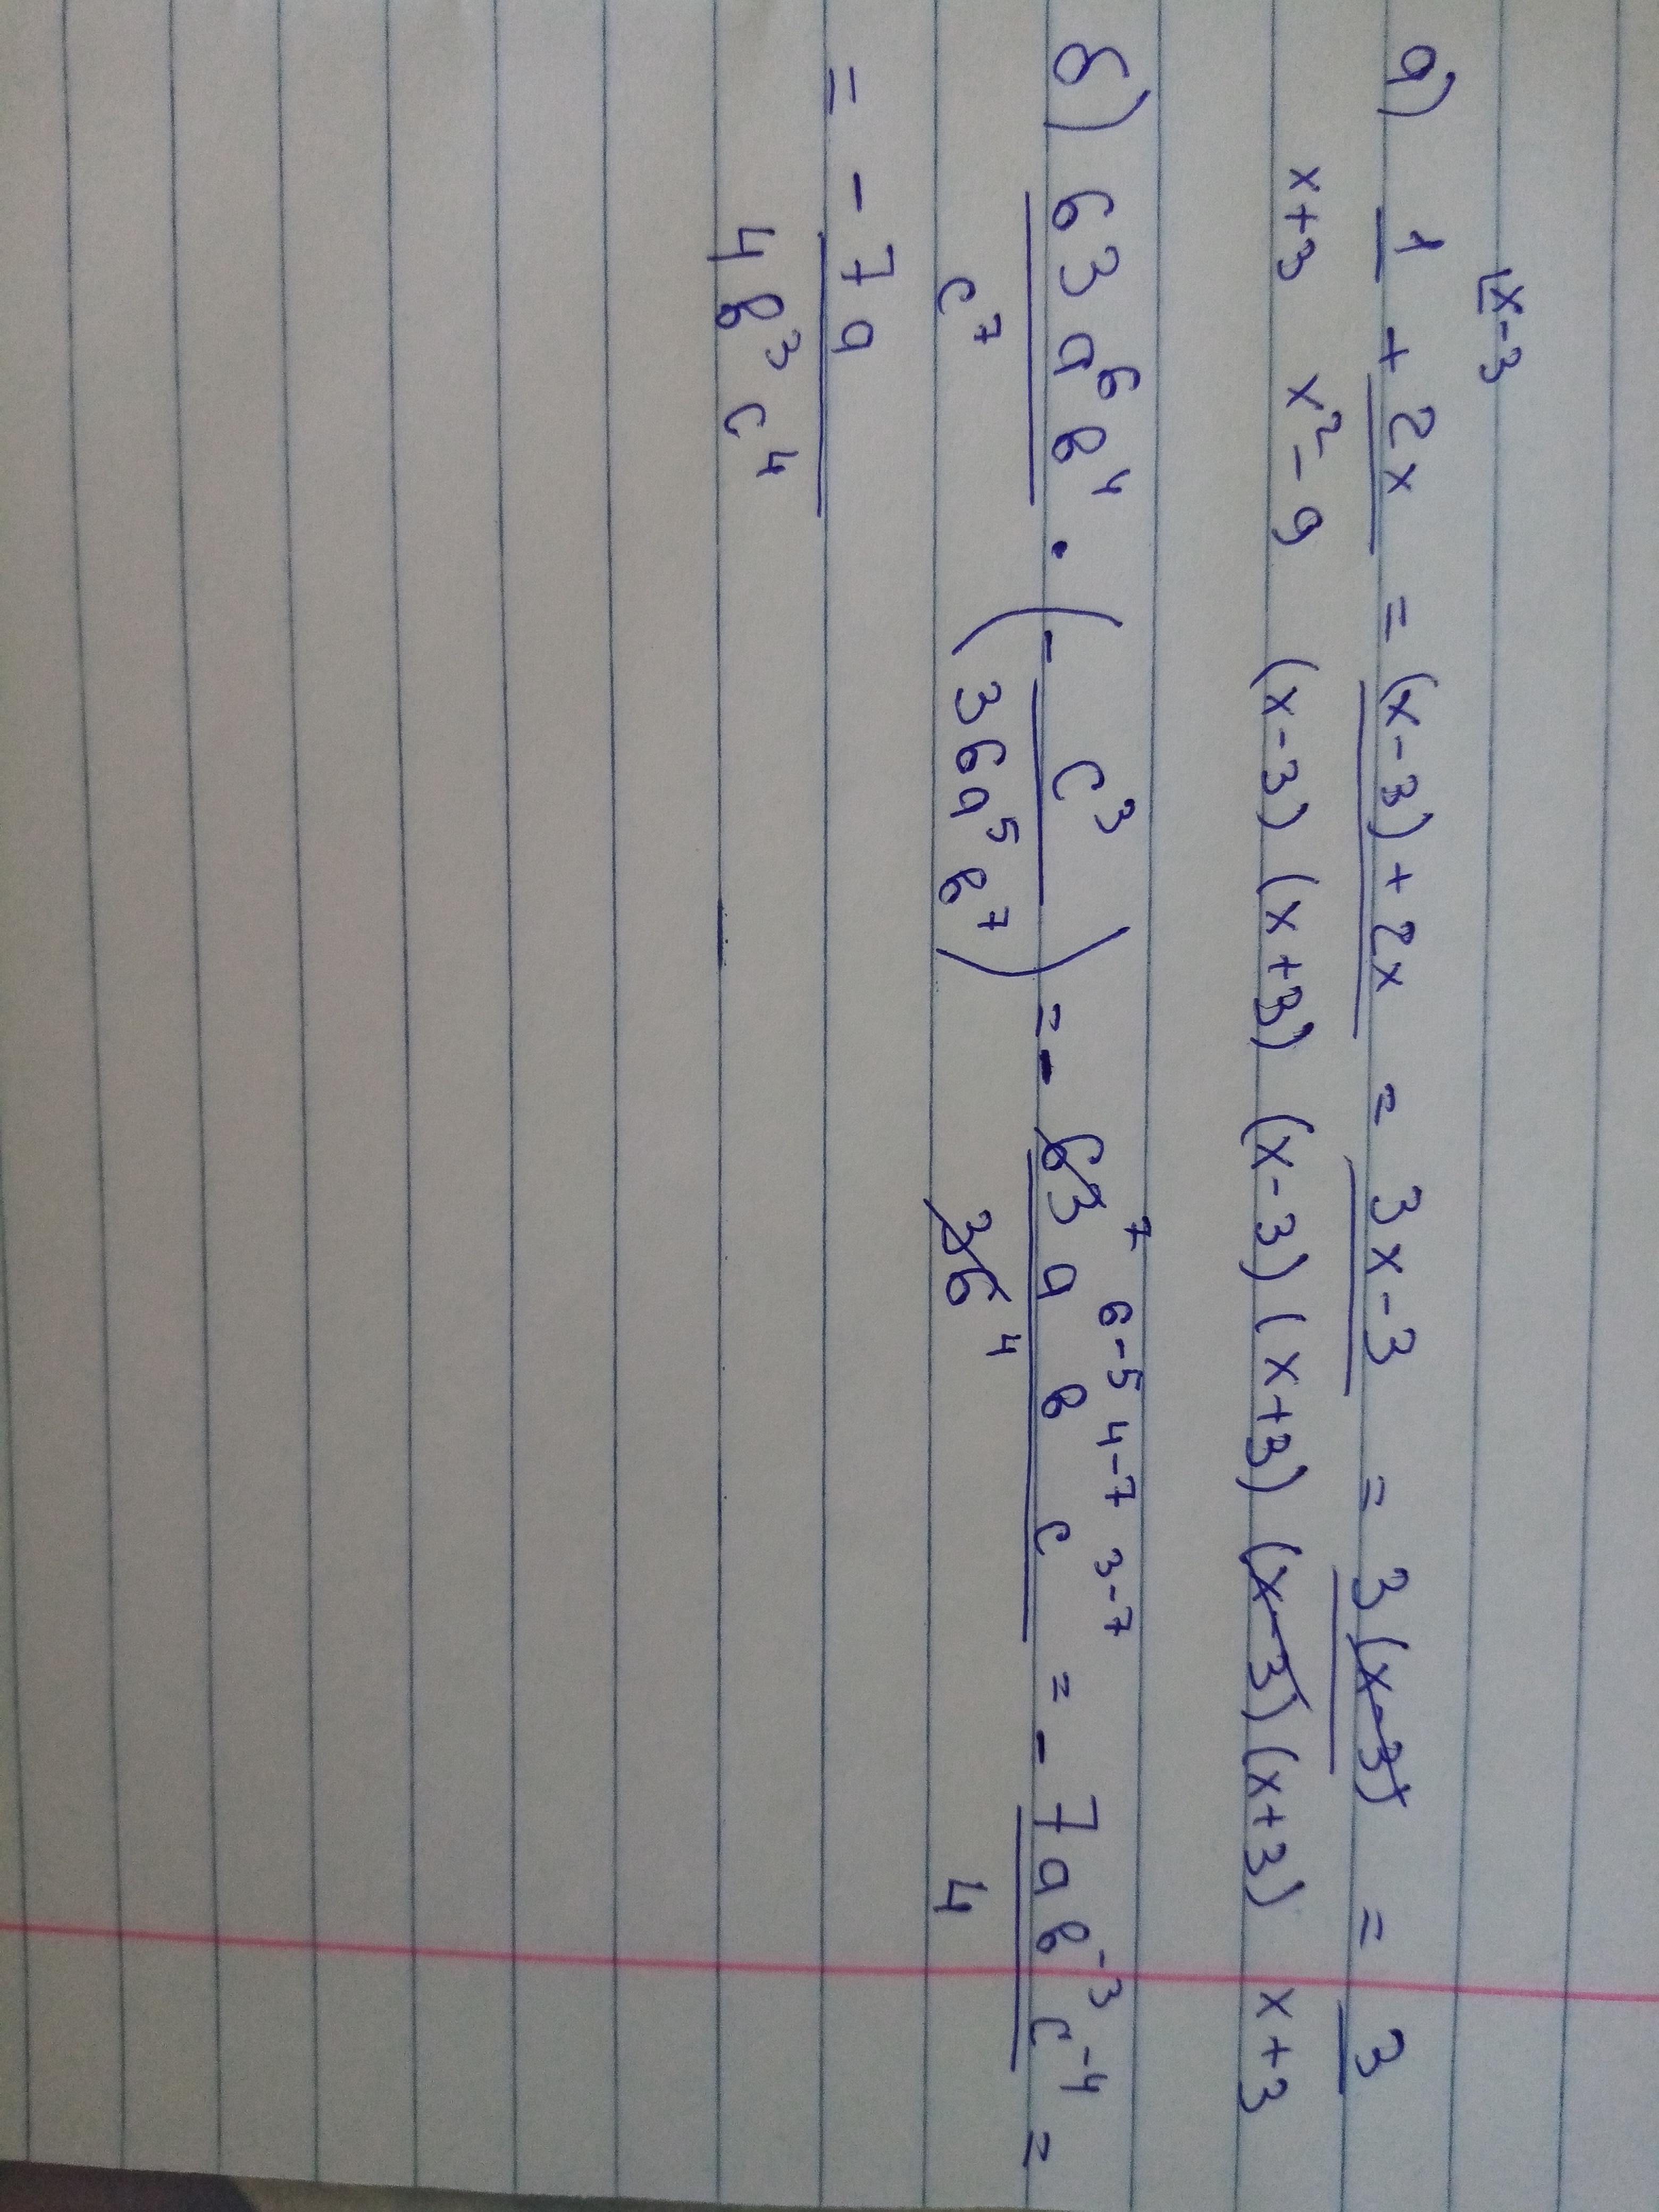 |x-3
а) 1/(x+3) + 2x/(x²-9) = ((x-3)+2x)/((x-3)(x+3)) = (3x-3)/((x-3)(x+3)) = 3(x-3)/((x-3)(x+3)) = 3/(x+3)
б) 63a⁶b⁴/c⁷ · (- c³/(36a⁵b⁷)) = - 63⁷a⁶⁻⁵b⁴⁻⁷c³⁻⁷/36⁴ = - 7ab⁻³c⁻⁴/4 =
= - 7a/(4b³c⁴)